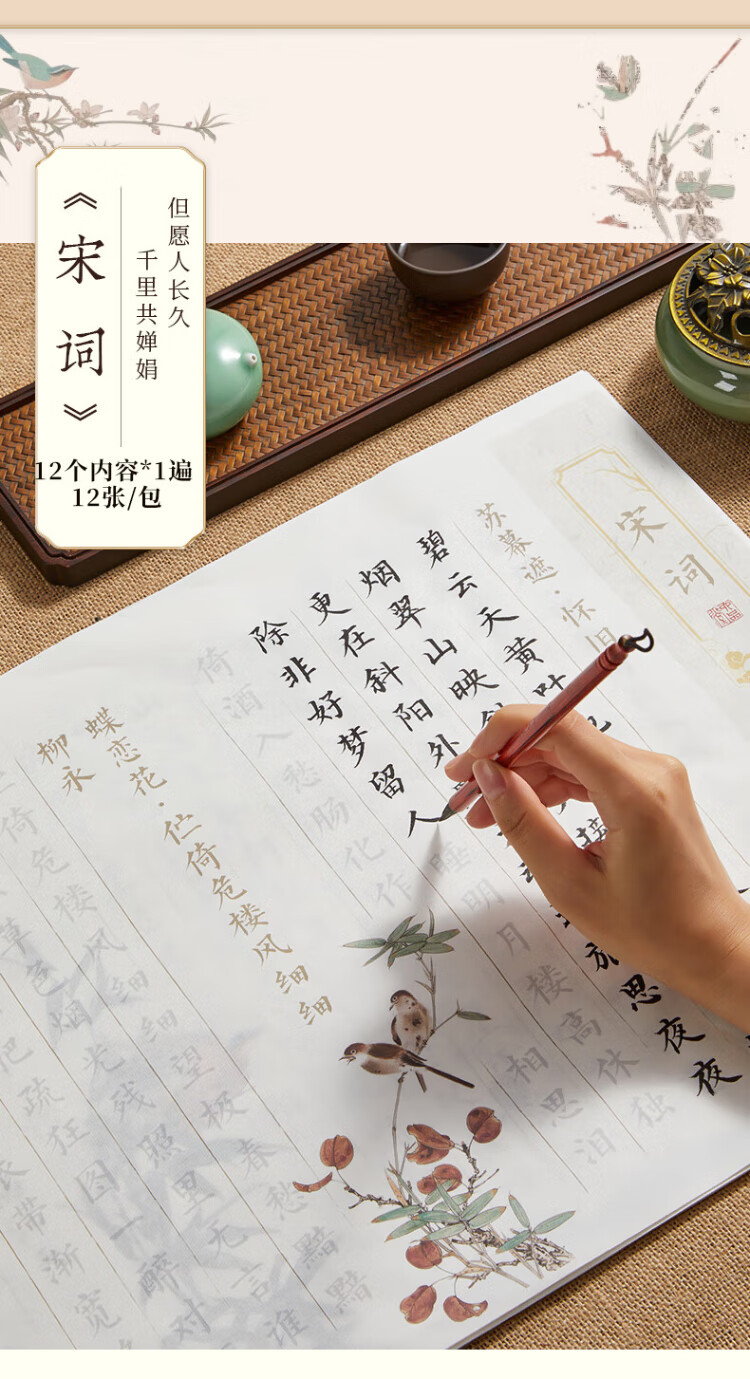 《宋词》
但愿人长久
千里共婵娟
12个内容*1遍
12张/包
宋词
苏幕遮·怀旧
碧云天黄叶
烟翠山映斜接
更在斜阳外思夜夜
除非好梦留人睡明月楼高休独
倚酒入愁肠化作相思泪
蝶恋花·伫倚危楼风细细
柳永
倚危楼风细细望极春愁黯黯
草色烟光残照里无言谁
把疏狂图一醉对
衣带渐宽